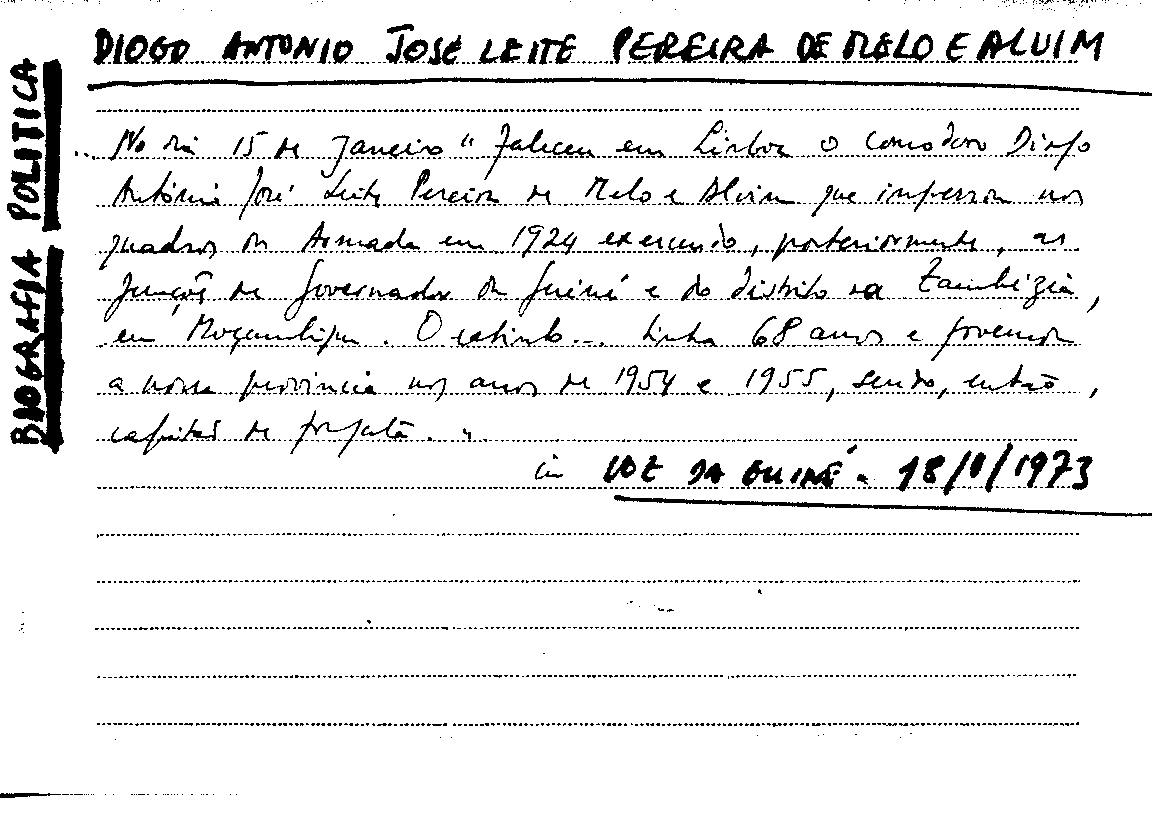 DIOGO ANTONIO JOSÉ LEITE PEREIRA DE MELO E ALVIM
BIOGRAFIA POLITICA
No dia 15 de Janeiro "faleceu em Lisboa o Comodoro Diogo
António José Leite Pereira de Melo e Alvim que ingressou nos
quadros da Armada em 1924 exercendo, posteriormente, as
funções de Governador da Guiné e do distrito da Zambézia,
em Moçambique. O extinto... tinha 68 anos e governou
a nossa província nos anos de 1954 e 1955, sendo, então,
capitão de fragata. "
in VOZ DA GUINÉ - 18/1/1973